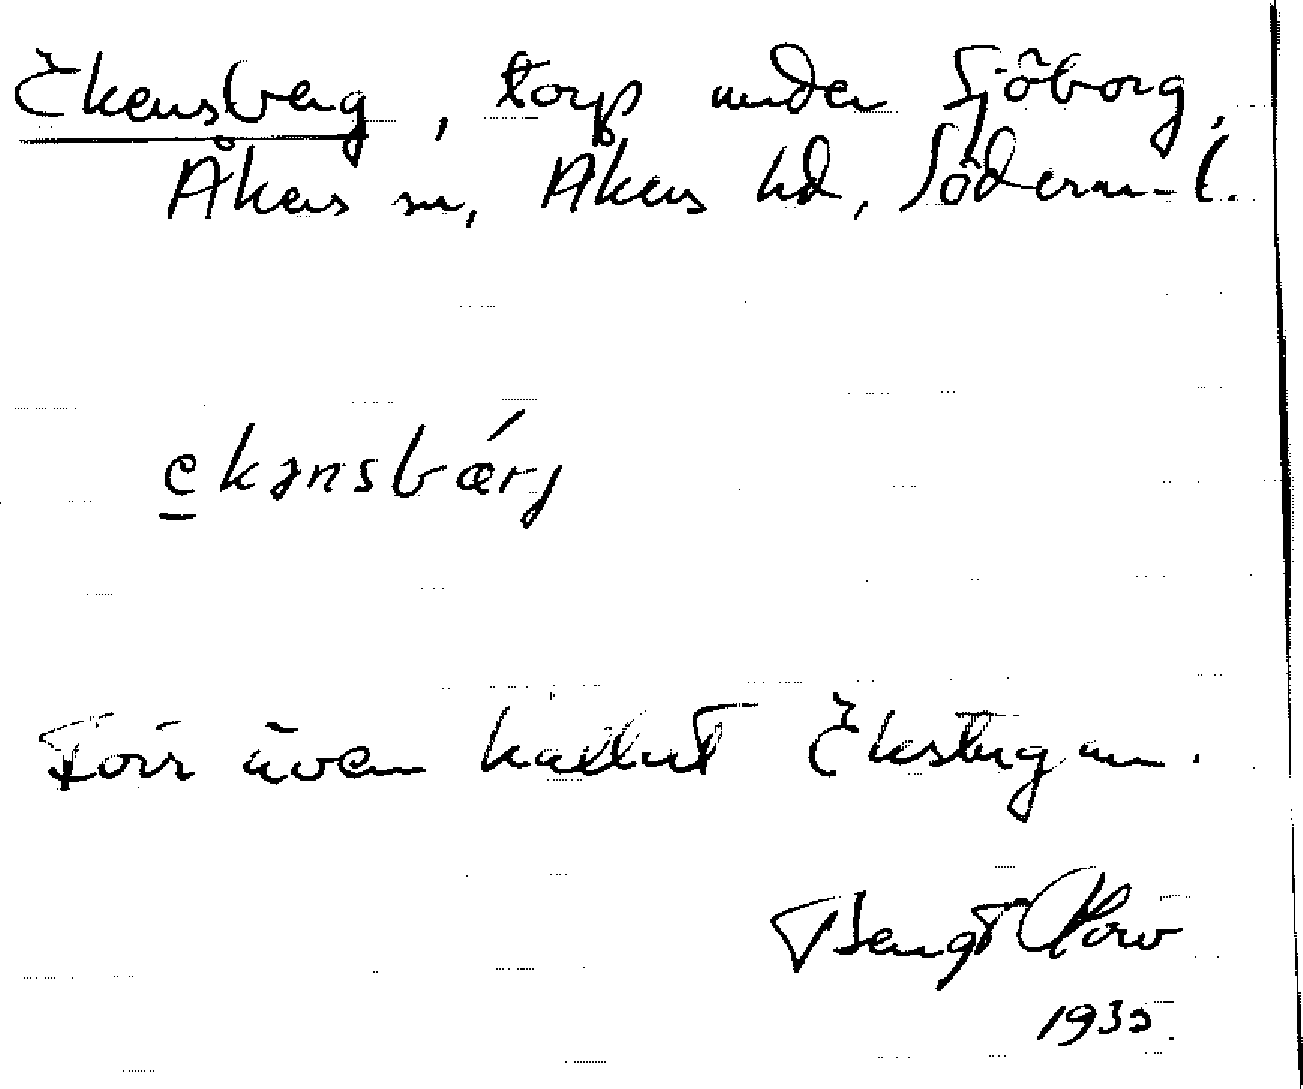 Ekensberg, torp under Sjöborg,
Åkers sn, Åkers hd, Söderm. l.
ekənsbǽrj
Förr även kallat Ekstugan.
Bengt